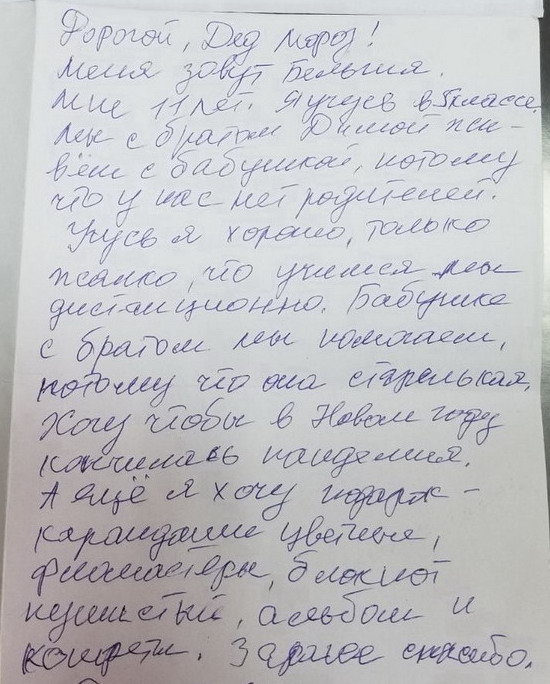 Дорогой, Дед Мороз!
Меня зовут Бельгия.
Мне 11 лет. Я учусь в 5 классе.
Мы с братом Димой жи-
вём с бабушкой, потому
что у нас нет родителей.
Учусь я хорошо, только
жалко, что учимся мы
дистанционно. Бабушке
с братом мы помогаем,
потому что она старенькая.
Хочу чтобы в Новом году
кончилась пандемия.
А ещё я хочу подарк-
карандаши цветные,
фломастеры, блокнот
пушистый, альбом и
конфеты. Заранее спасибо.